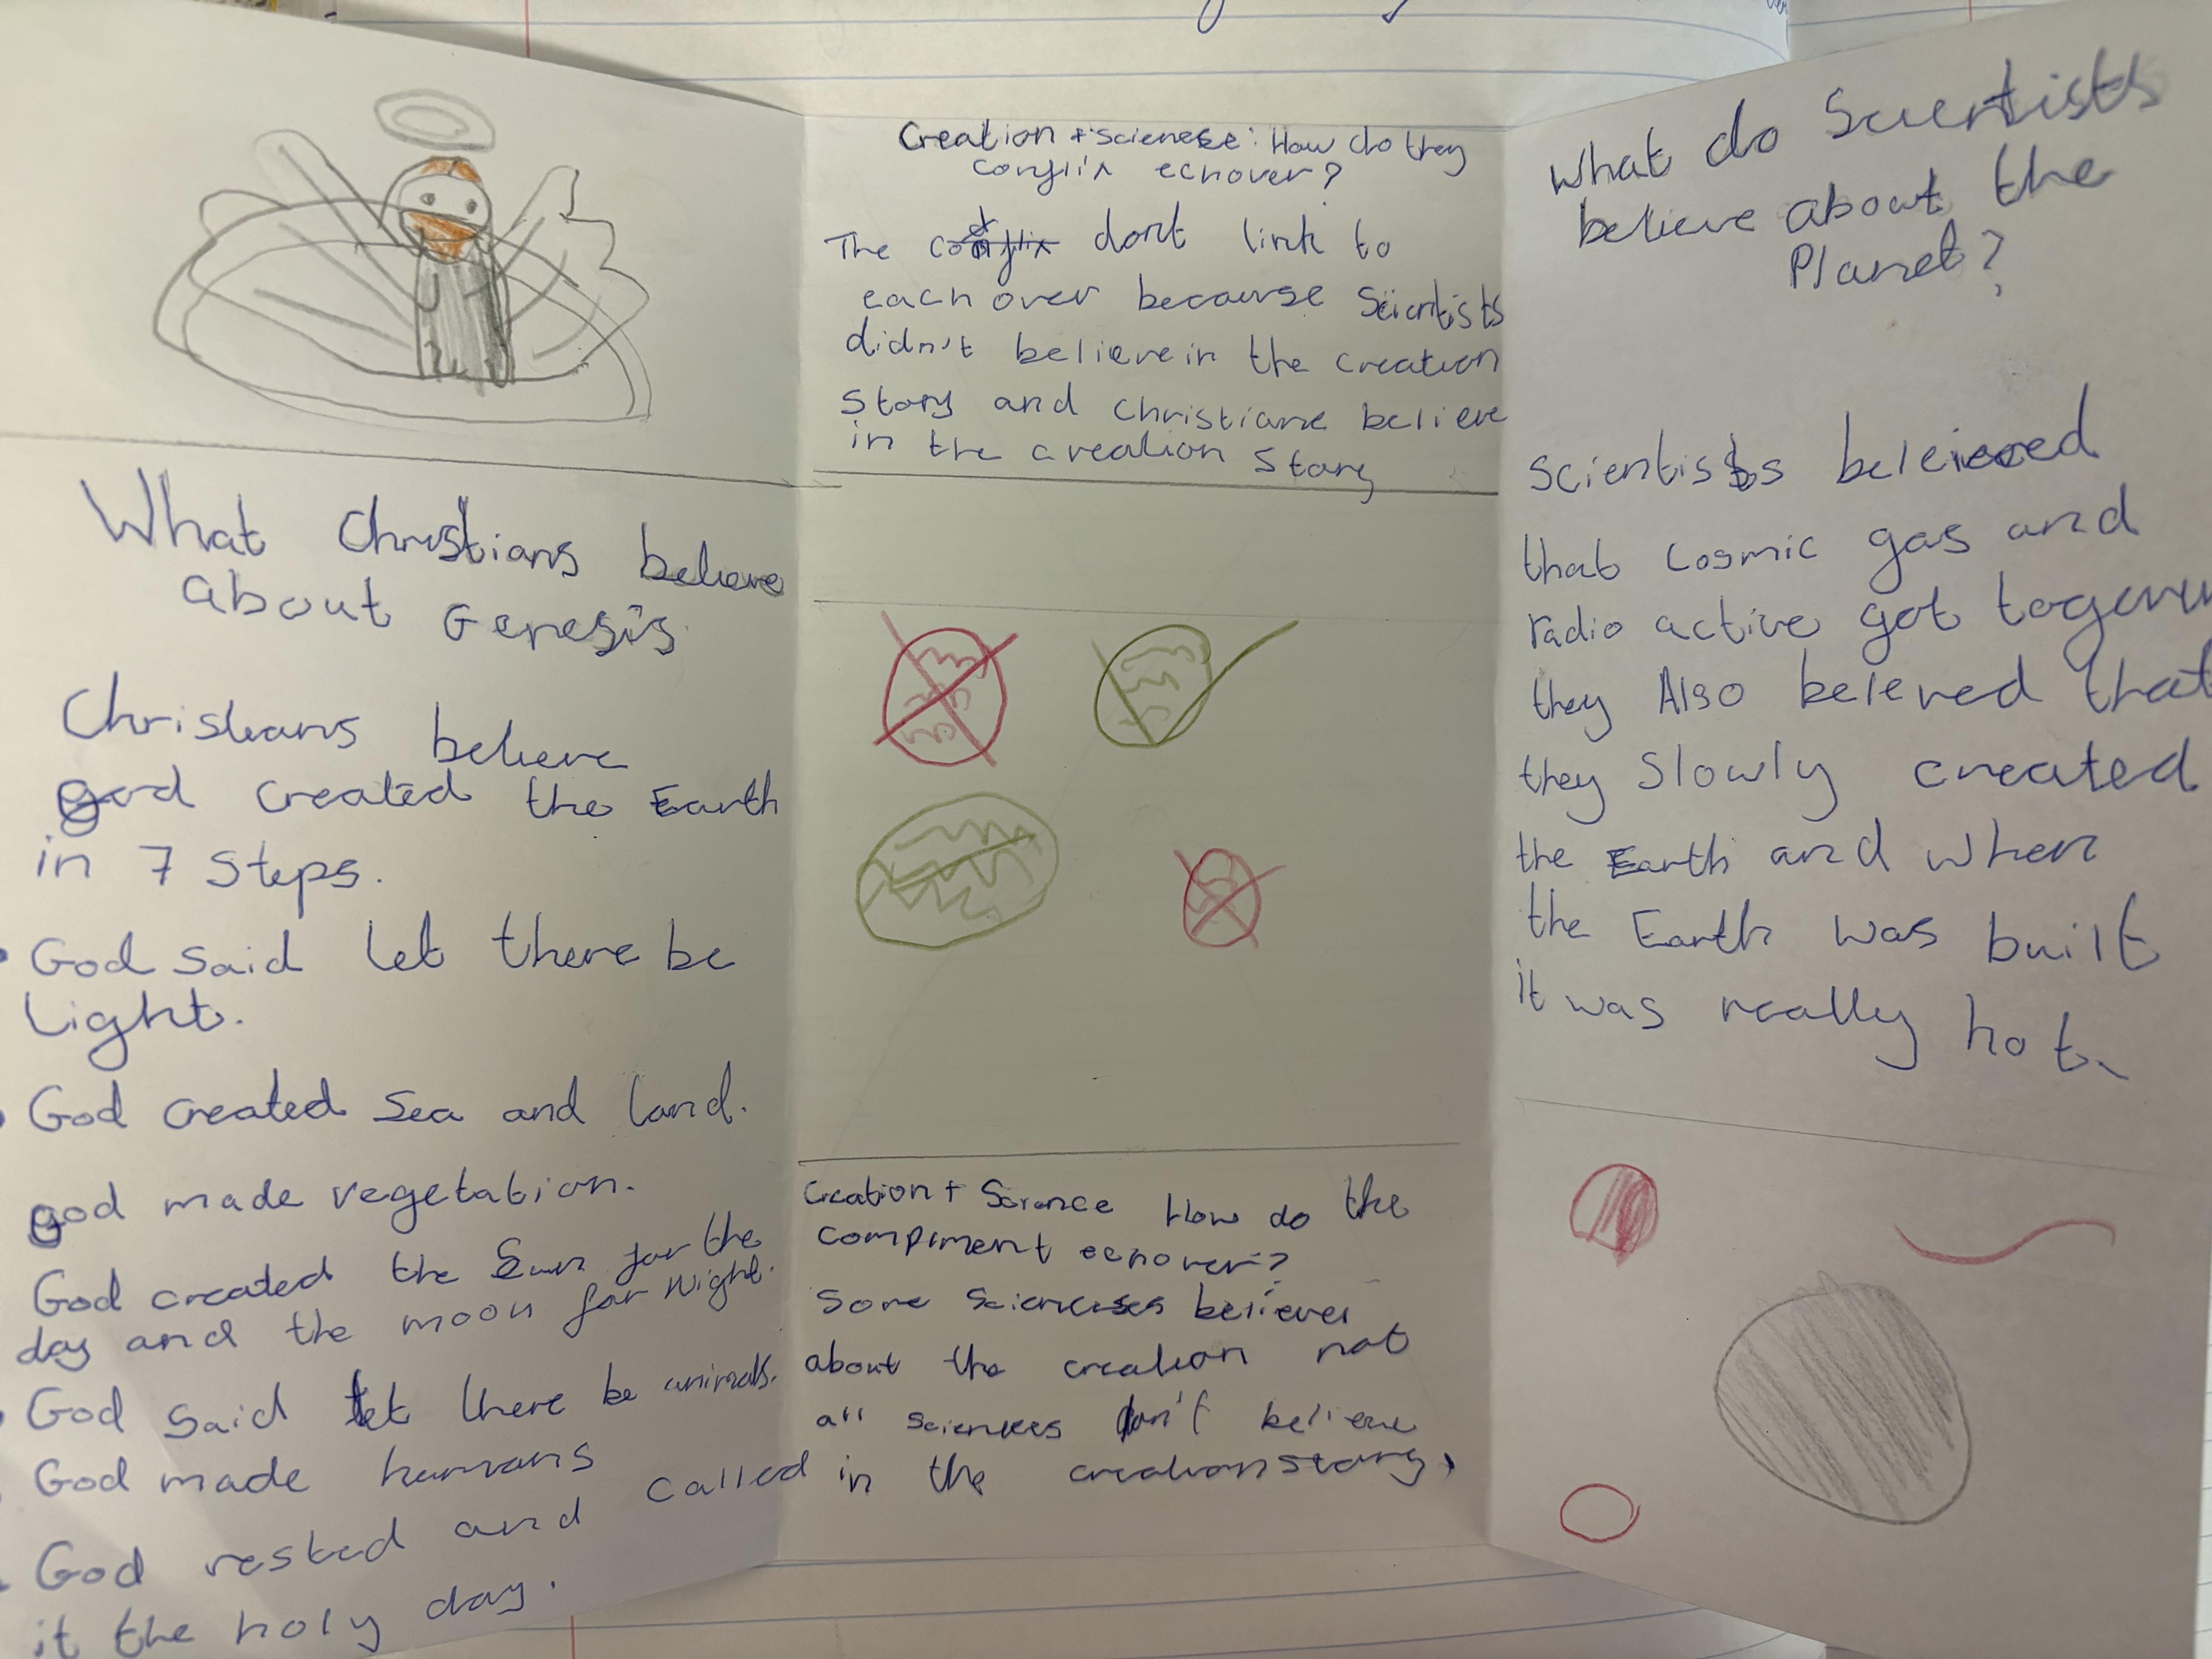 What Christians believe
about Genesis
Christians believe
god created the Earth
in 7 Steps.
God said let there be
Light.
God created Sea and land.
god made vegetation.
God created the Sun for the
day and the moon for Night.
God said let there be animals.
God made humans
God rested and called
it the holy day.
Creation + science: How do they
conflix echover?
The dont link to
each over because Scientists
didn't believe in the creation
Story and Christians believe
in the creation Story
Creation + Science How do the
compment echover?
Some sciencses believe
about the creation not
all sciences don't believe
in the creation story,
What do Scientists
believe about the
Planet?
Scientists beleieved
that cosmic gas and
radio active got
they Also beleved that
they Slowly created
the Earth and when
the Earth was built
it was really hot.